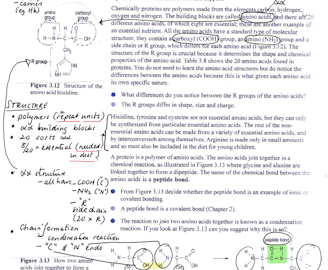 - carnitin
(eg Hb)
amino group
carboxyl group
R group
Figure 3.12 Structure of the
amino acid histidine.
STRUCTURE
• polymers (repeat units)
• building blocks
• 20 sorts
8/20 = essential (needed in diet)
structure
- all have - COOH (C)
- NH2 ("N")
- "R"
sidechain
(20 x R)
• Chain formation
- condensation reaction
- "C" & "N" Ends
Figure 3.13 How two amino
acids join together to form a
Chemically proteins are made from the elements carbon, hydrogen,
oxygen and nitrogen. The building blocks are called amino acids and there are 20
different amino acids, of which eight are essential; these are another example of
an essential nutrient. All the amino acids have a standard type of molecular
structure; they contain a carboxyl (COOH) group, an amino (NH2) group and a
side chain or R group, which differs for each amino acid (Figure 3.12). The
structure of the R group is crucial because it determines the shape and chemical
properties of the amino acid. Table 3.8 shows the 20 amino acids found in
proteins. You do not need to learn the amino acid structures but do notice the
differences between the amino acids because this is what gives each amino acid
its own specific nature.
● What differences do you notice between the R groups of the amino acids?
● The R groups differ in shape, size and charge.
Histidine, tyrosine and cysteine are not essential amino acids, but they can only
be synthesized from particular essential amino acids. The rest of the non-
essential amino acids can be made from a variety of essential amino acids, and
by interconversion among themselves. Arginine is made only in small amounts
and so must also be included in the diet for young children.
A protein is a polymer of amino acids. The amino acids join together in a
chemical reaction, as illustrated in Figure 3.13 where glycine and alanine are
linked together to form a dipeptide. The name of the chemical bond between the
amino acids is a peptide bond.
● From Figure 3.13 decide whether the peptide bond is an example of ionic or
covalent bonding.
● A peptide bond is a covalent bond (Chapter 2).
● The reaction to join two amino acids together is known as a condensation
reaction. If you look at Figure 3.13 can you suggest why this is so?
peptide bond